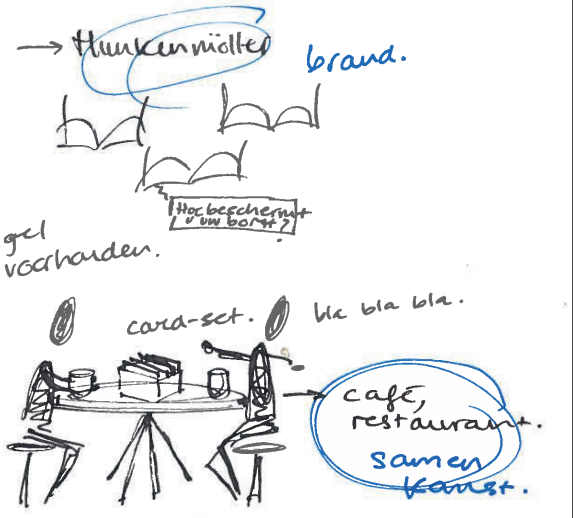 Hunkemöller
brand.
Hoe beschermt
u uw borst?
gel
voorhanden.
card-set.
bla bla bla.
café,
restaurant.
samen